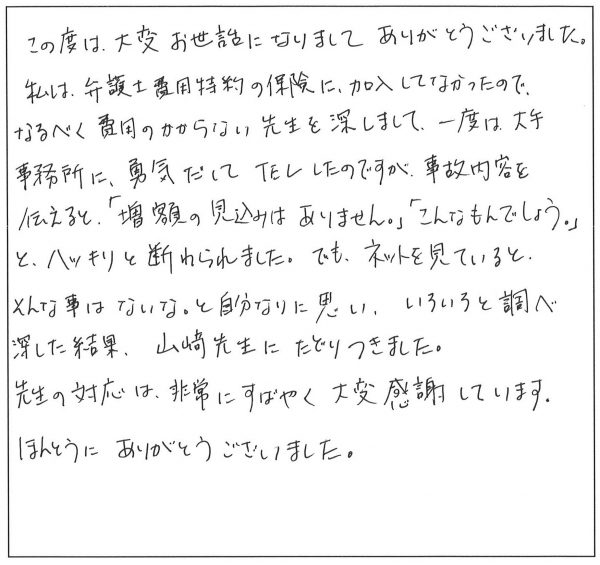 この度は、大変お世話になりまして ありがとうございました。
私は、弁護士費用特約の保険に、加入してなかったので、
なるべく費用のかからない先生を深しまして、一度は、大手
事務所に、勇気だして TELしたのですが、事故内容を
伝えると、「増額の見込みはありません。」「こんなもんでしょう。」
と、ハッキリと断わられました。でも、ネットを見ていると、
そんな事はないな。と自分なりに思い、いろいろと調べ
深した結果、山﨑先生にたどりつきました。
先生の対応は、非常にすばやく 大変感謝しています。
ほんとうに ありがとうございました。